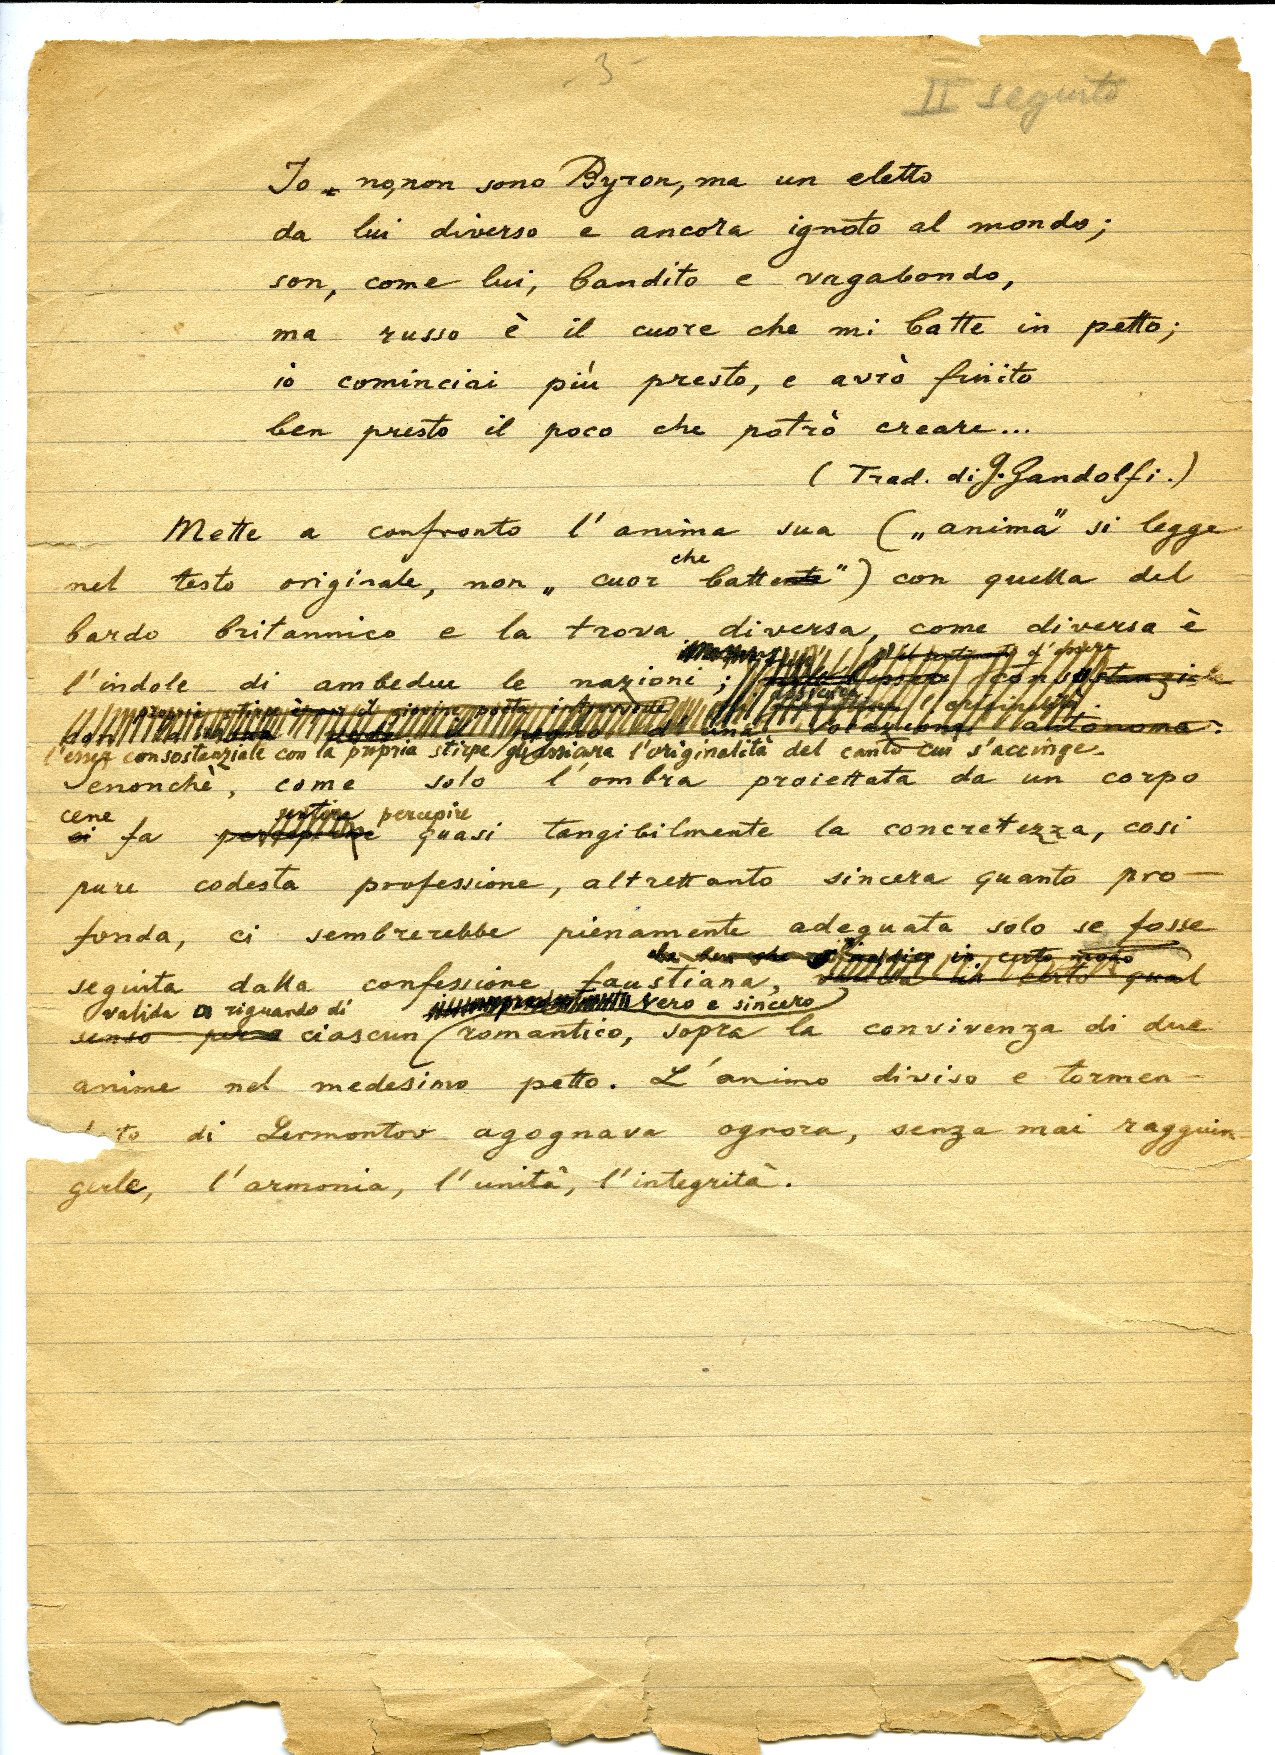 - 3 -
II seguito
Io no, non sono Byron, ma un eletto
da lui diverso e ancora ignoto al mondo;
son, come lui, bandito e vagabondo,
ma russo è il cuore che mi batte in petto;
io cominciai più presto, e avrò finito
ben presto il poco che potrò creare...
(Trad. di G. Gandolfi.)
Mette a confronto l'anima sua („anima" si legge
nel testo originale, non „cuor che batte") con quella del
bardo britannico e la trova diversa, come diversa è
d'essere
l'indole di ambedue le nazioni; consostanziale
proprio stirpe il giovine poeta
autonoma.
l'esser consostanziale con la propria stirpe gli assicura l'originalità del canto cui s'accinge.
Senonchè, come solo l'ombra proiettata da un corpo
cene sentire percepire
si fa quasi tangibilmente la concretezza, così
pure codesta professione, altrettanto sincera quanto pro-
fonda, ci sembrerebbe pienamente adeguata solo se fosse
in certo modo
seguita dalla confessione faustiana, valida in certo qual
valida a riguardo di vero e sincero
senso per ciascun romantico, sopra la convivenza di due
anime nel medesimo petto. L'animo diviso e tormen-
to di Lermontov agognava ognora, senza mai raggiun-
gerle, l'armonia, l'unità, l'integrità.